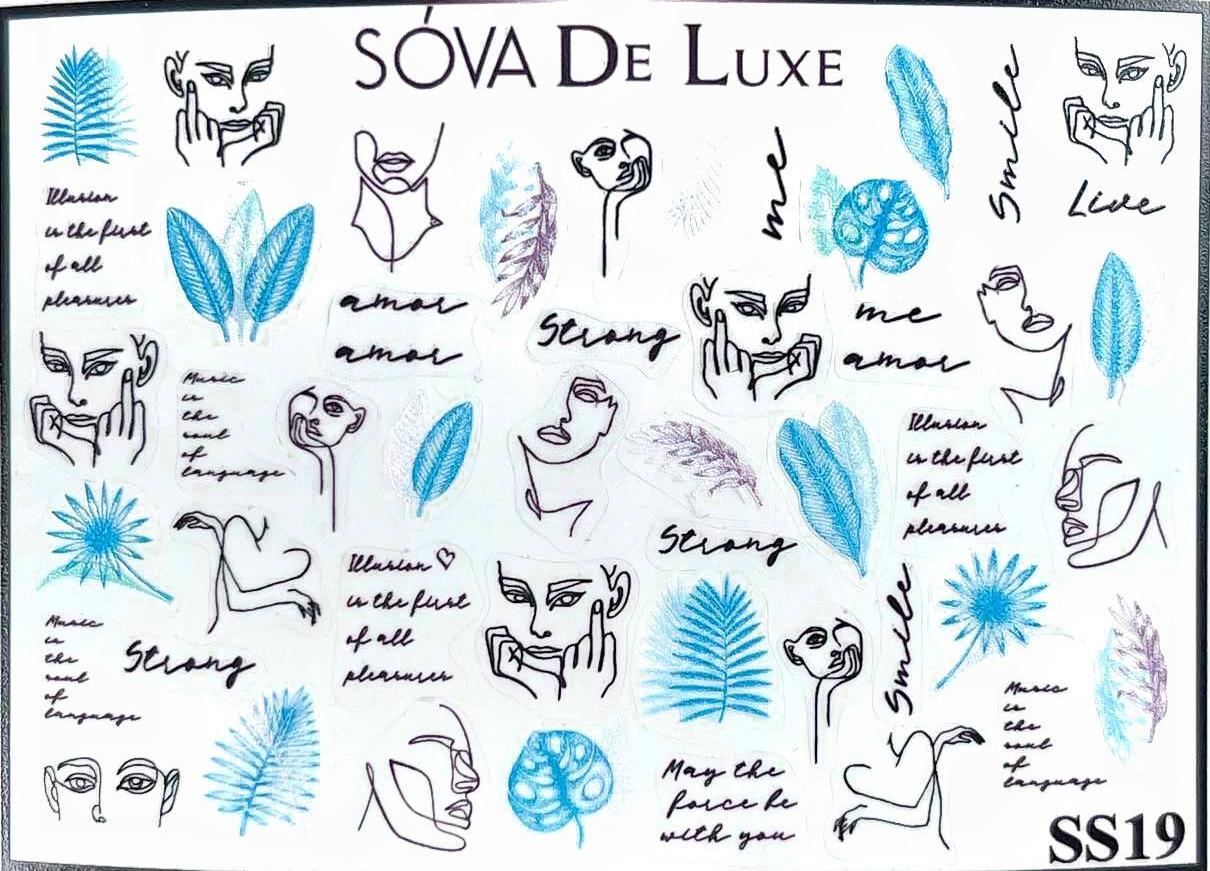 SÓVA DE LUXE
Smile
me
Live
Illusion
is the first
of all
pleasures
amor
amor
Strong
me
amor
Music
is
the
soul
of
language
Illusion
is the first
of all
pleasures
Strong
Illusion
is the first
of all
pleasures
Smile
Music
is
the
soul
of
language
Strong
Music
is
the
soul
of
language
May the
force be
with you
SS19